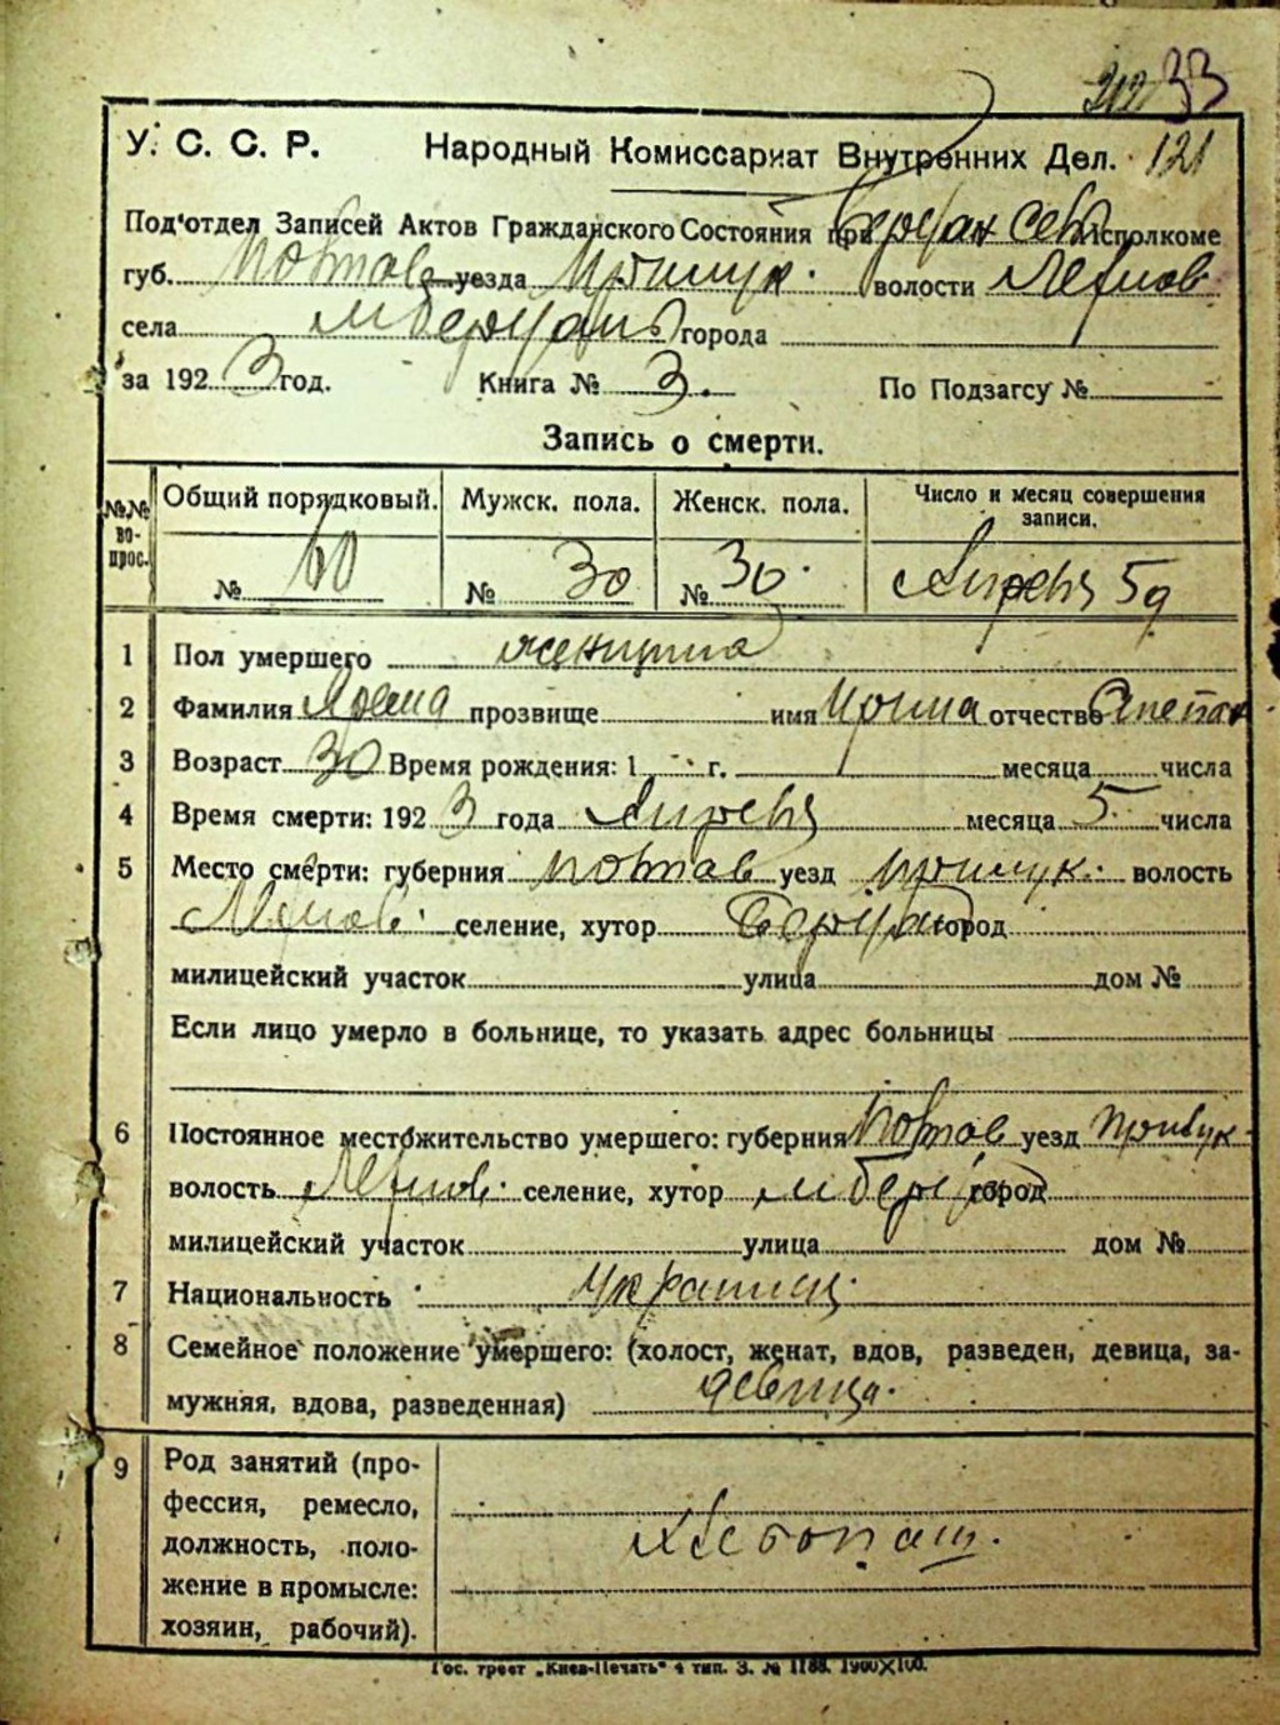 33
У. С. С. Р. Народный Комиссариат Внутренних Дел. 121
Под'отдел Записей Актов Гражданского Состояния при Исполкоме
губ. Полтав уезда Прилук. волости
села города
за 192 3 год. Книга № 3. По Подзагсу №
Запись о смерти.
№№ во-прос. Общий порядковый. Мужск. пола. Женск. пола. Число и месяц совершения записи.
№ 60 № 30 № 30. Апрель 5д
1 Пол умершего женщина
2 Фамилия прозвище имя Ирина отчество
3 Возраст 30 Время рождения: 1 г. месяца числа
4 Время смерти: 192 3 года Апрель месяца 5 числа
5 Место смерти: губерния Полтав уезд Прилук. волость
селение, хутор город
милицейский участок улица дом №
Если лицо умерло в больнице, то указать адрес больницы
6 Постоянное местожительство умершего: губерния Полтав уезд Прилук
волость селение, хутор город
милицейский участок улица дом №
7 Национальность Украинец.
8 Семейное положение умершего: (холост, женат, вдов, разведен, девица, за-
мужняя, вдова, разведенная) девица.
9 Род занятий (про-
фессия, ремесло,
должность, поло- Хлебопаш.
жение в промысле:
хозяин, рабочий).
Гос. трест „Киев-Печать“ 4 тип. З. № 1188. 1900×100.